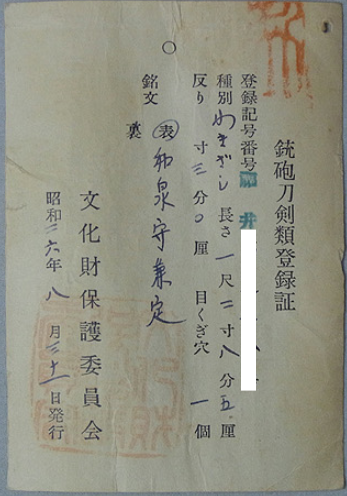 銃砲刀剣類登録証
登録記号番号 井
種別 わきざし 長さ 一尺二寸八分五厘
反り 寸三分〇厘 目くぎ穴 一個
銘文 表 和泉守兼定
裏
文化財保護委員会
昭和二六年八月三十一日発行